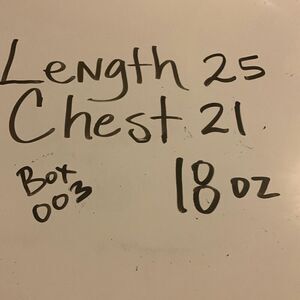 Length 25
Chest 21
Box
003
18 oz